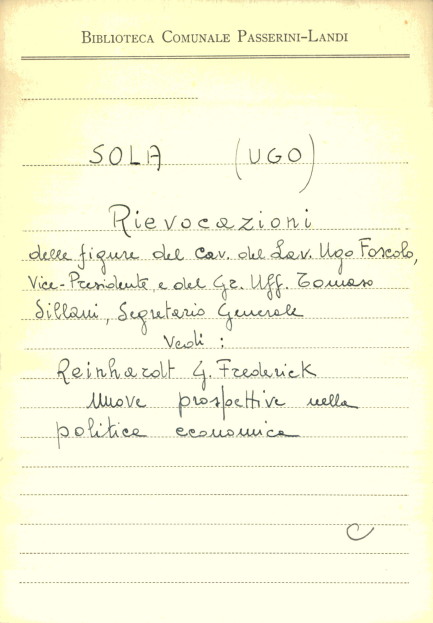 BIBLIOTECA COMUNALE PASSERINI-LANDI
SOLA (UGO)
Rievocazioni
delle figure del cav. del Lav. Ugo Foscolo,
Vice-Presidente e del Gr. Uff. Tomaso
Sillani, Segretario Generale
Vedi :
Reinhardt G. Frederick
Nuove prospettive nella
politica economica
C